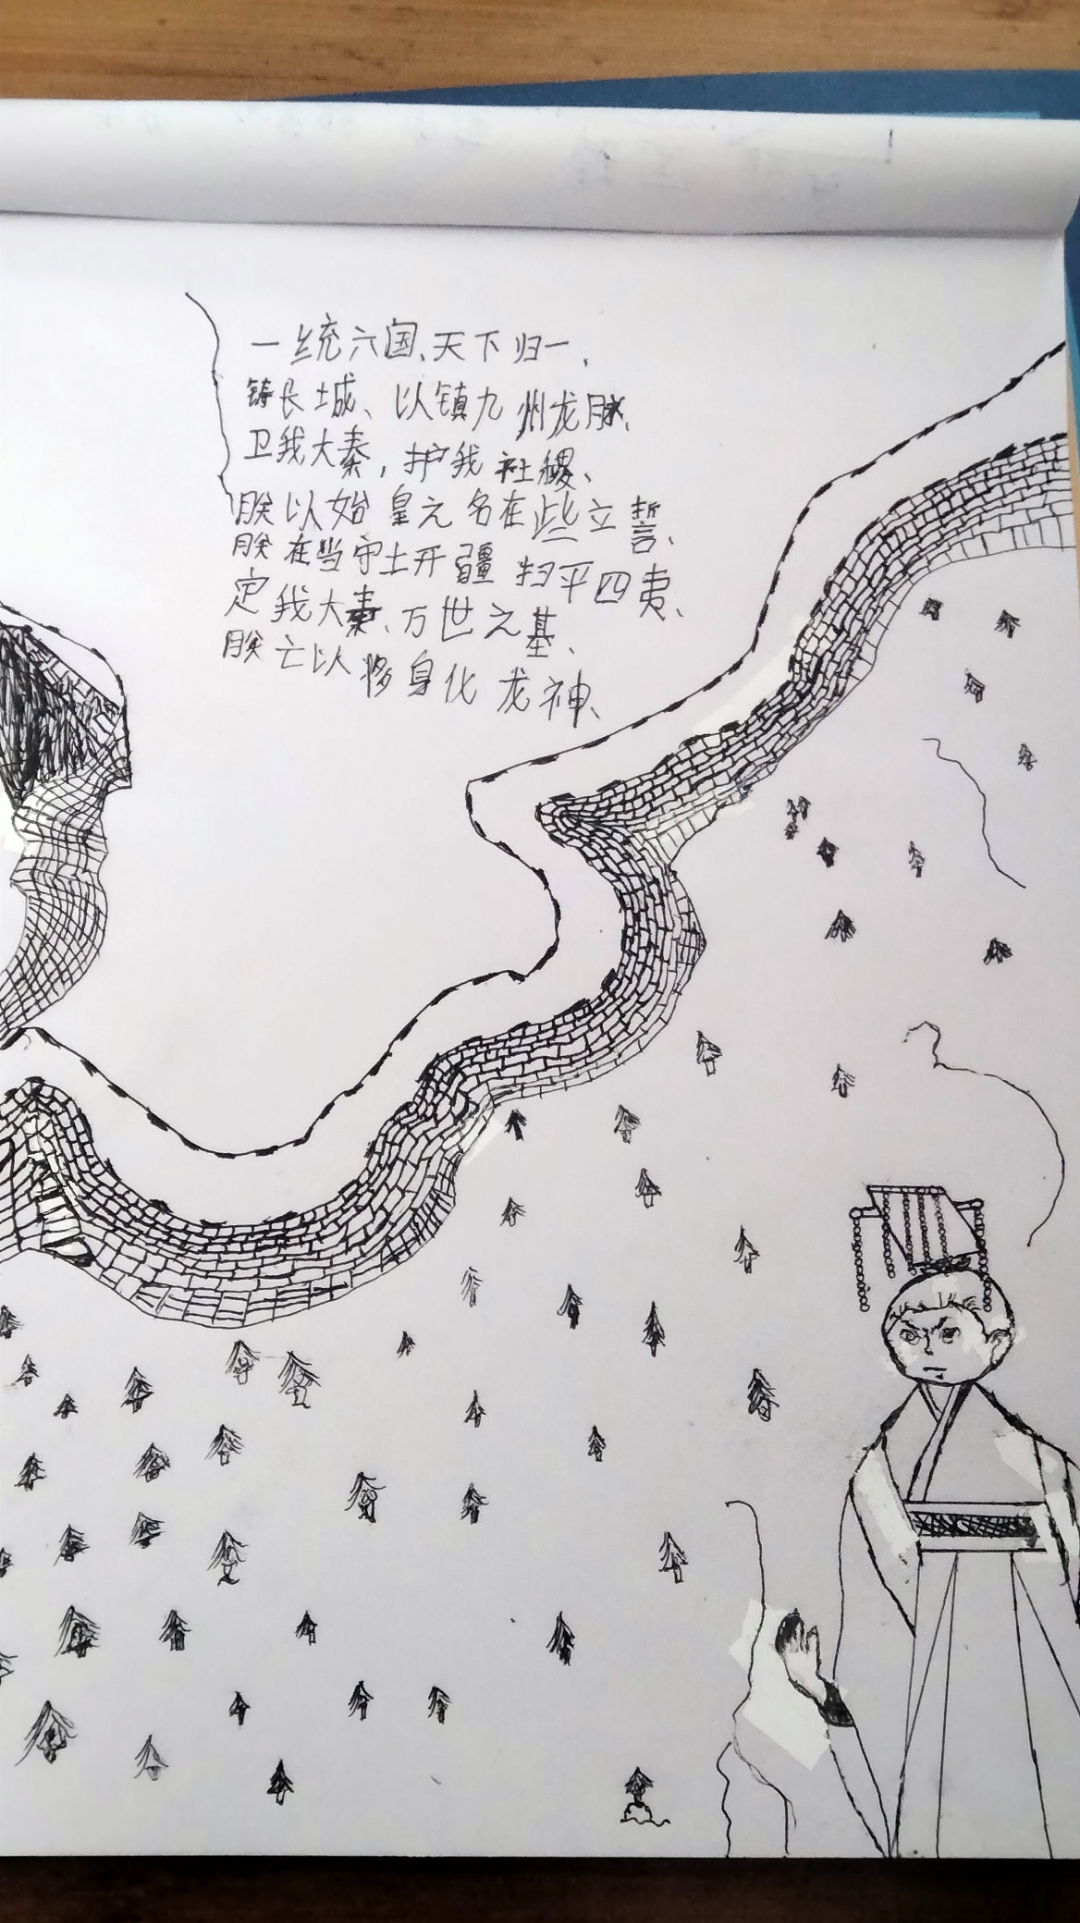 一统六国、天下归一、
铸长城、以镇九州龙脉、
卫我大秦，护我社稷、
朕以始皇之名在些立誓、
朕在当守土开疆扫平四夷、
定我大秦、万世之基、
朕亡以将身化龙神、